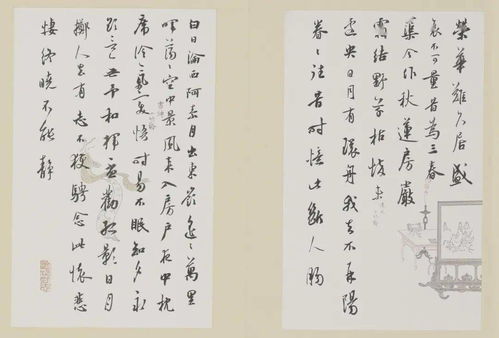 榮華難久居盛
衰不可量昔為三春
蕖今作秋蓮房嚴
霜結野草枯悴未
遽央日月有環周我去不再陽
眷〻往昔時憶此斷人腸
白日淪西阿素月出東嶺遙〻萬里
暉蕩〻空中景風來入房戶夜中枕
席冷氣變悟時易不眠知夕永
欲言無予和揮杯勸孤影日月
擲人去有志不獲騁念此懷悲
悽終曉不能靜